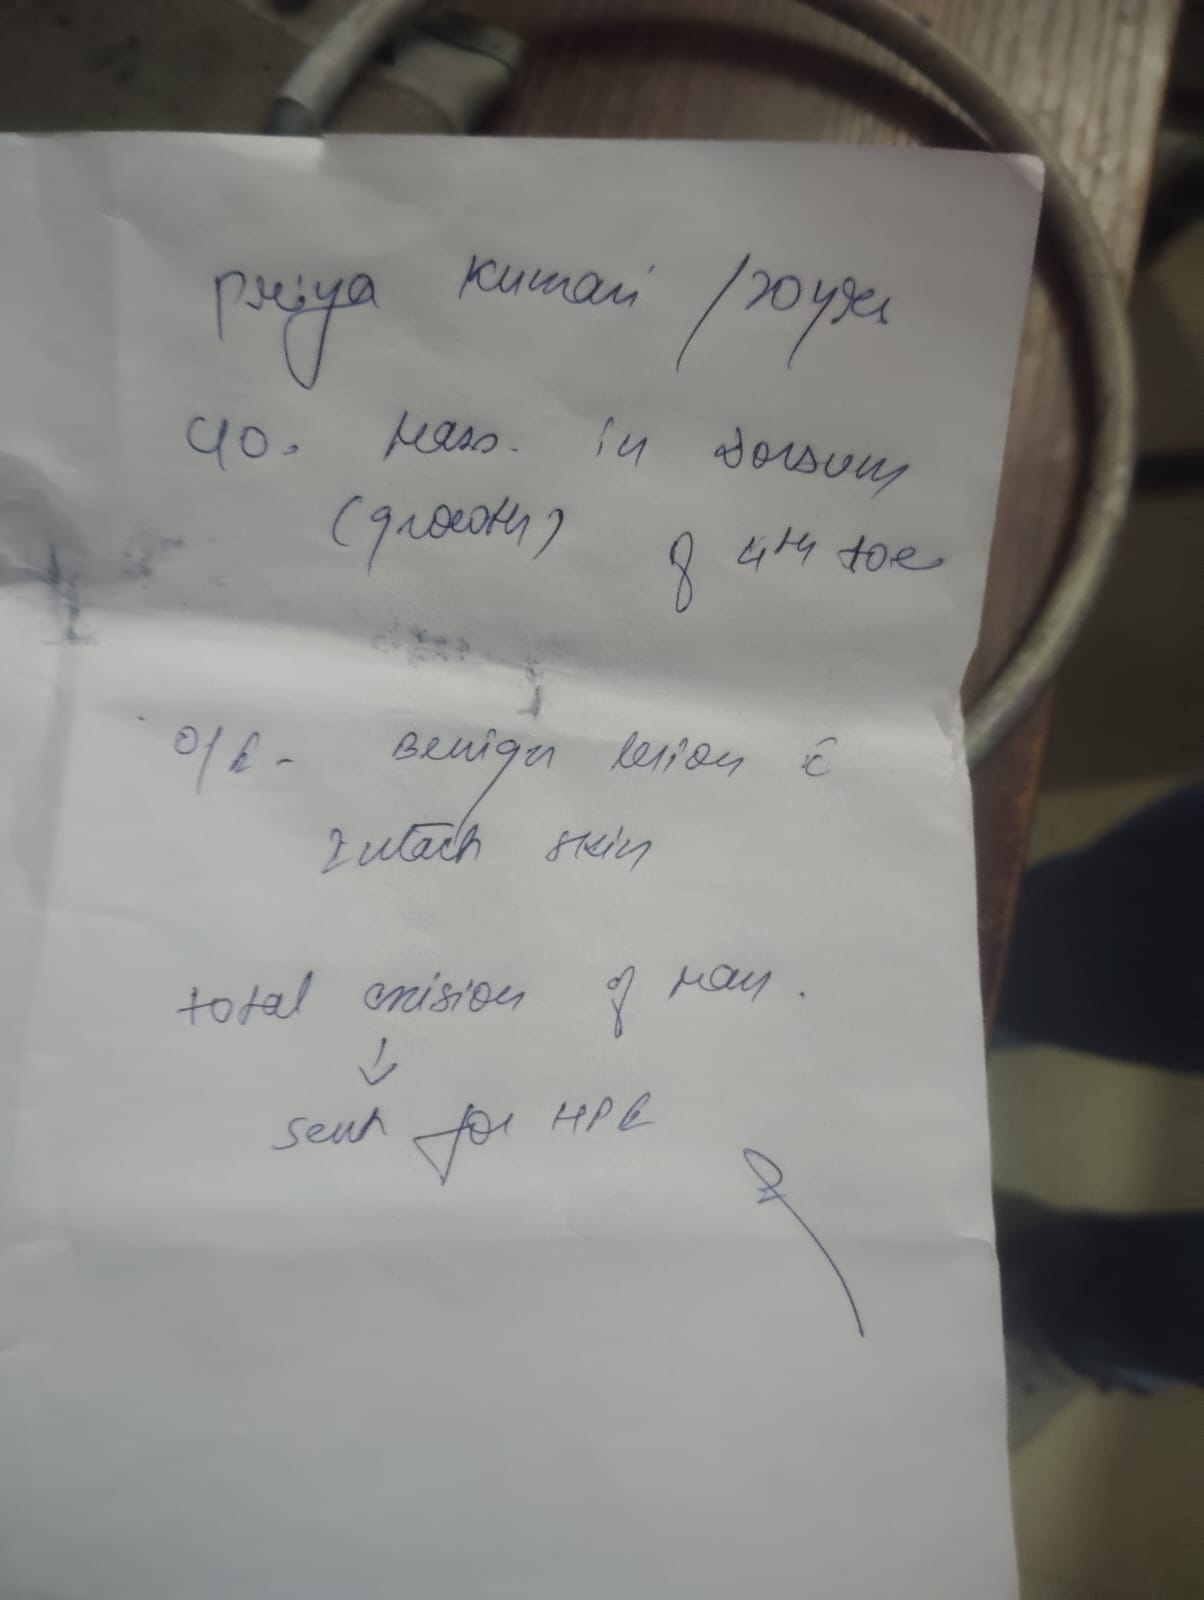 Priya Kumari /20yrs
C/O. Mass. in Dorsum
(growth) of 4th toe
O/E - Benign lesion c̄
Intact skin
total exision of Mass.
↓
sent for HPE